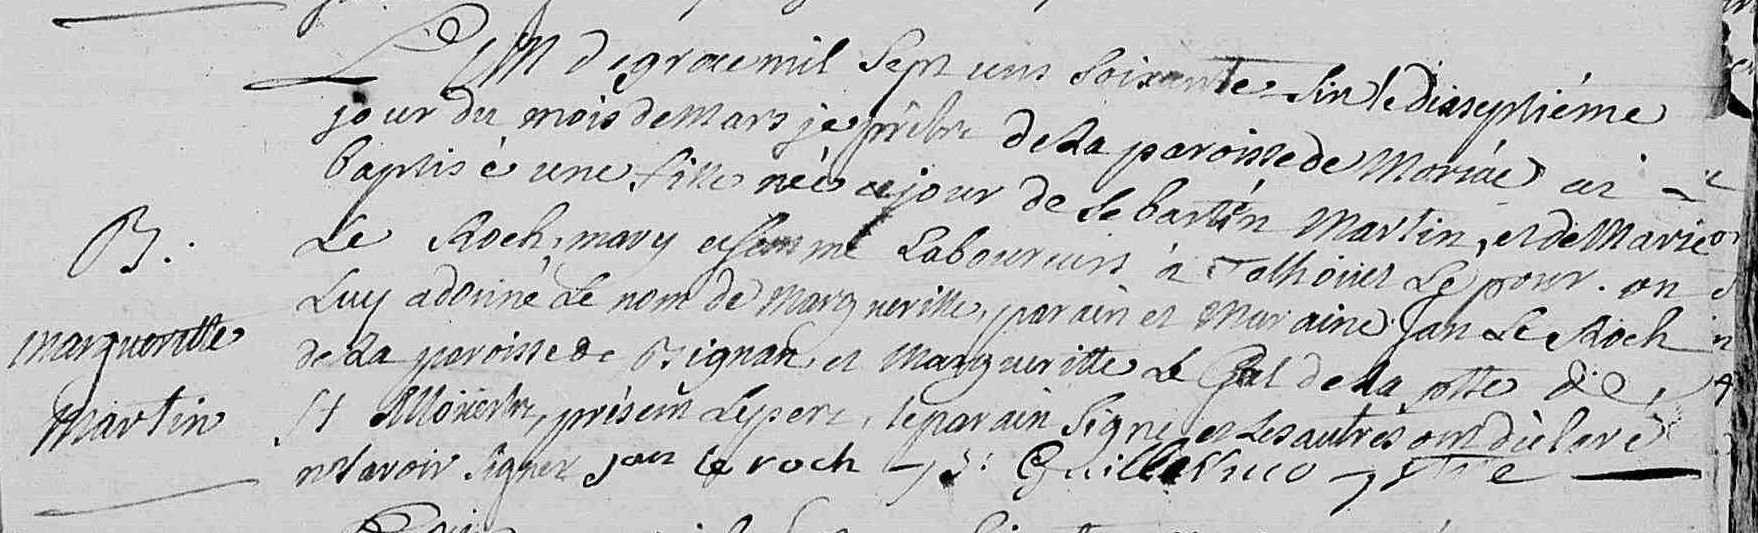 B.
margueritte
Martin
L'an de grace mil sept cens soixante sin le diaseptiéme
jour du mois de mars je prêbtre de La paroisse de Moriac ai
baptisé une fille née ce jour de Sebastien Martin, et de Marie
Le Roch, mary et femme Laboureurs à Talhoüet Le pour. on
Luy a donné Le nom de Margueritte, parain et Maraine Jan Le Roch
de La paroisse de Bignan et Margueritte Le Gal de La ptte de
St Alloüestre, présens Le pere, le parain signe et Les autres ont déclaré
ne savoir signer jan le roch J: Guillevuco ptre